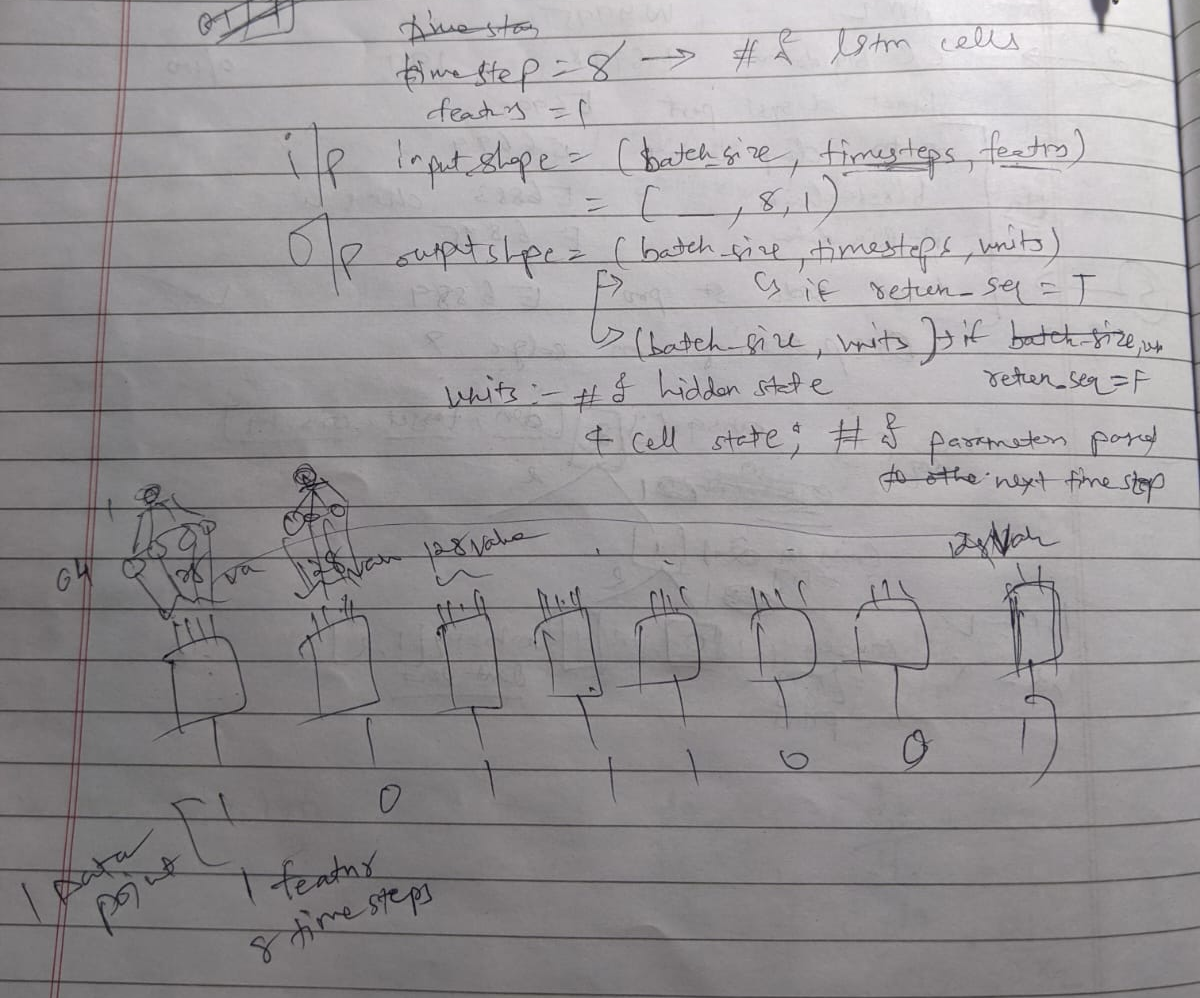 time sta
time step = 8 → # of lstm cells
featurs = 1
i/p input shape = (batch_size, timesteps, featrs)
= ( __ , 8, 1)
O/p output shpe = (batch_size, timesteps, units)
↳ if retuen_seq = T
↳ (batch_size, units) → if batch-size, un
retuen_seq = F
units :- # of hidden state
& cell state; # of parameters pased
to othe next time step
1
64 128 va 128 valu 128 value 128 Valu
1 0 1 1 1 0 0 1
1 Data point
1 featur
8 time steps